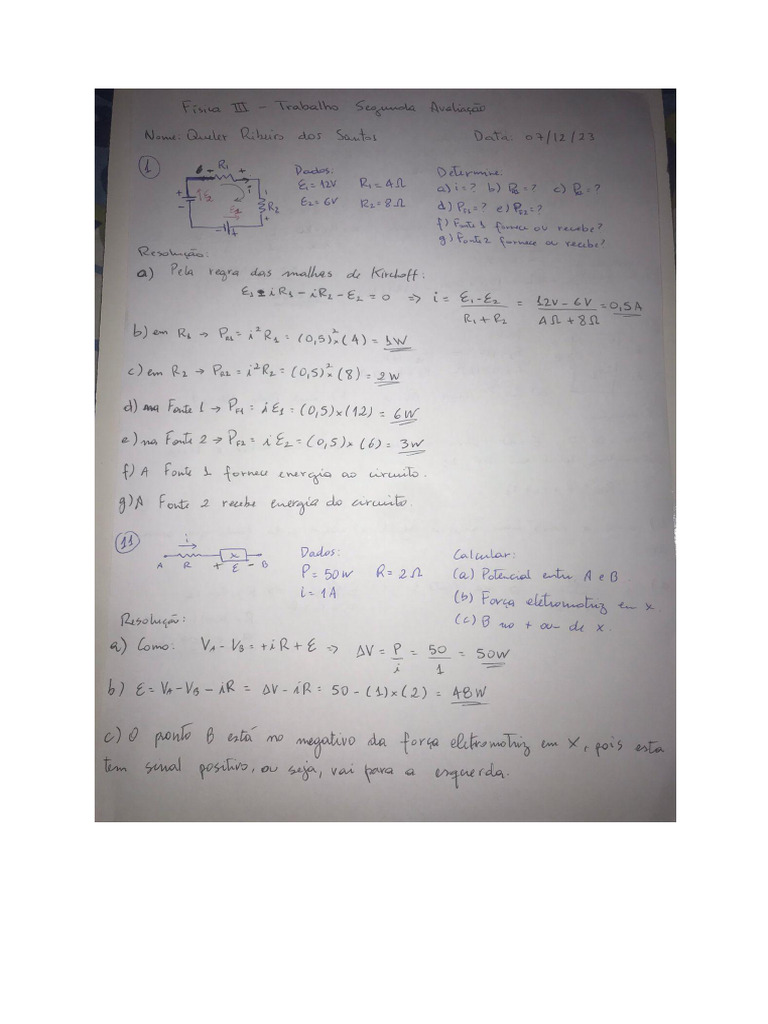 Física III - Trabalho Segunda Avaliação
Nome: Queler Ribeiro dos Santos Data: 07/12/23
1
R1
- +
i
+ -
E2
E1
R2
- +
Dados:
E1 = 12V R1 = 4Ω
E2 = 6V R2 = 8Ω
Determine:
a) i = ? b) PR1 = ? c) PR2 = ?
d) PF1 = ? e) PF2 = ?
f) Fonte 1 fornece ou recebe?
g) Fonte 2 fornece ou recebe?
Resolução:
a) Pela regra das malhas de Kirchoff:
E1 - iR1 - iR2 - E2 = 0 => i = E1 - E2 / R1 + R2 = 12V - 6V / 4Ω + 8Ω = 0,5A
b) em R1 → PR1 = i²R1 = (0,5)² × (4) = 1W
c) em R2 → PR2 = i²R2 = (0,5)² × (8) = 2W
d) na Fonte 1 → PF1 = iE1 = (0,5) × (12) = 6W
e) na Fonte 2 → PF2 = iE2 = (0,5) × (6) = 3W
f) A Fonte 1 fornece energia ao circuito.
g) A Fonte 2 recebe energia do circuito.
11
i
A R + x E - B
Dados:
P = 50W R = 2Ω
i = 1A
Calcular:
(a) Potencial entre A e B.
(b) Força eletromotriz em x.
(c) B no + ou de x.
Resolução:
a) Como: VA - VB = +iR + E => ΔV = P / i = 50 / 1 = 50W
b) E = VA - VB - iR = ΔV - iR = 50 - (1) × (2) = 48W
c) O ponto B está no negativo da força eletromotriz em X, pois esta
tem sinal positivo, ou seja, vai para a esquerda.